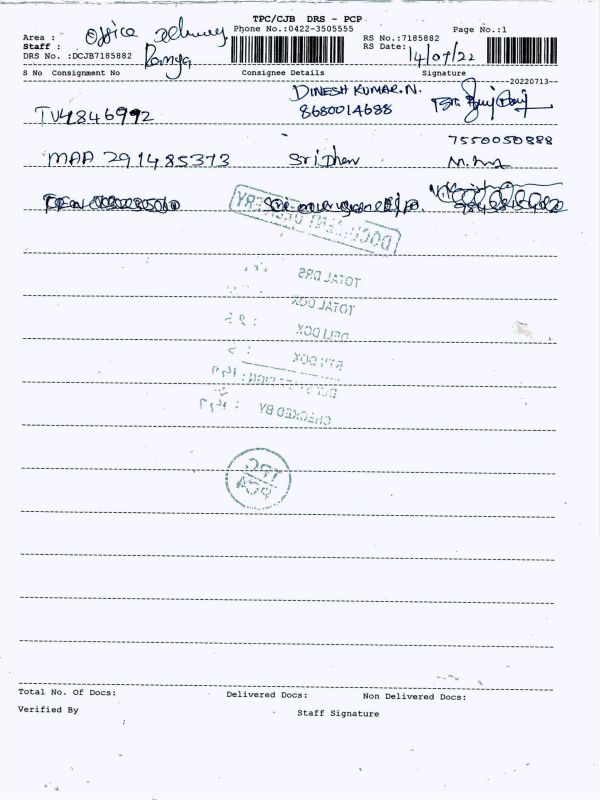 TPC/CJB DRS - PCP
Area : Office delivery Phone No.:0422-3505555 RS No.:7185882 Page No.:1
Staff : Ramya RS Date: 14/07/22
DRS No. :DCJB7185882
S No Consignment No Consignee Details Signature
20220713
DINESH KUMAR.N.
TUY846992 8680014688
7550050888
MAA 291485373 Sridhar
DOCUMENT DELIVERY
TOTAL DRS
TOTAL DOX
DELI DOX
RTN DOX
CHECKED BY
TPC
PCA
Total No. Of Docs: Delivered Docs: Non Delivered Docs:
Verified By Staff Signature